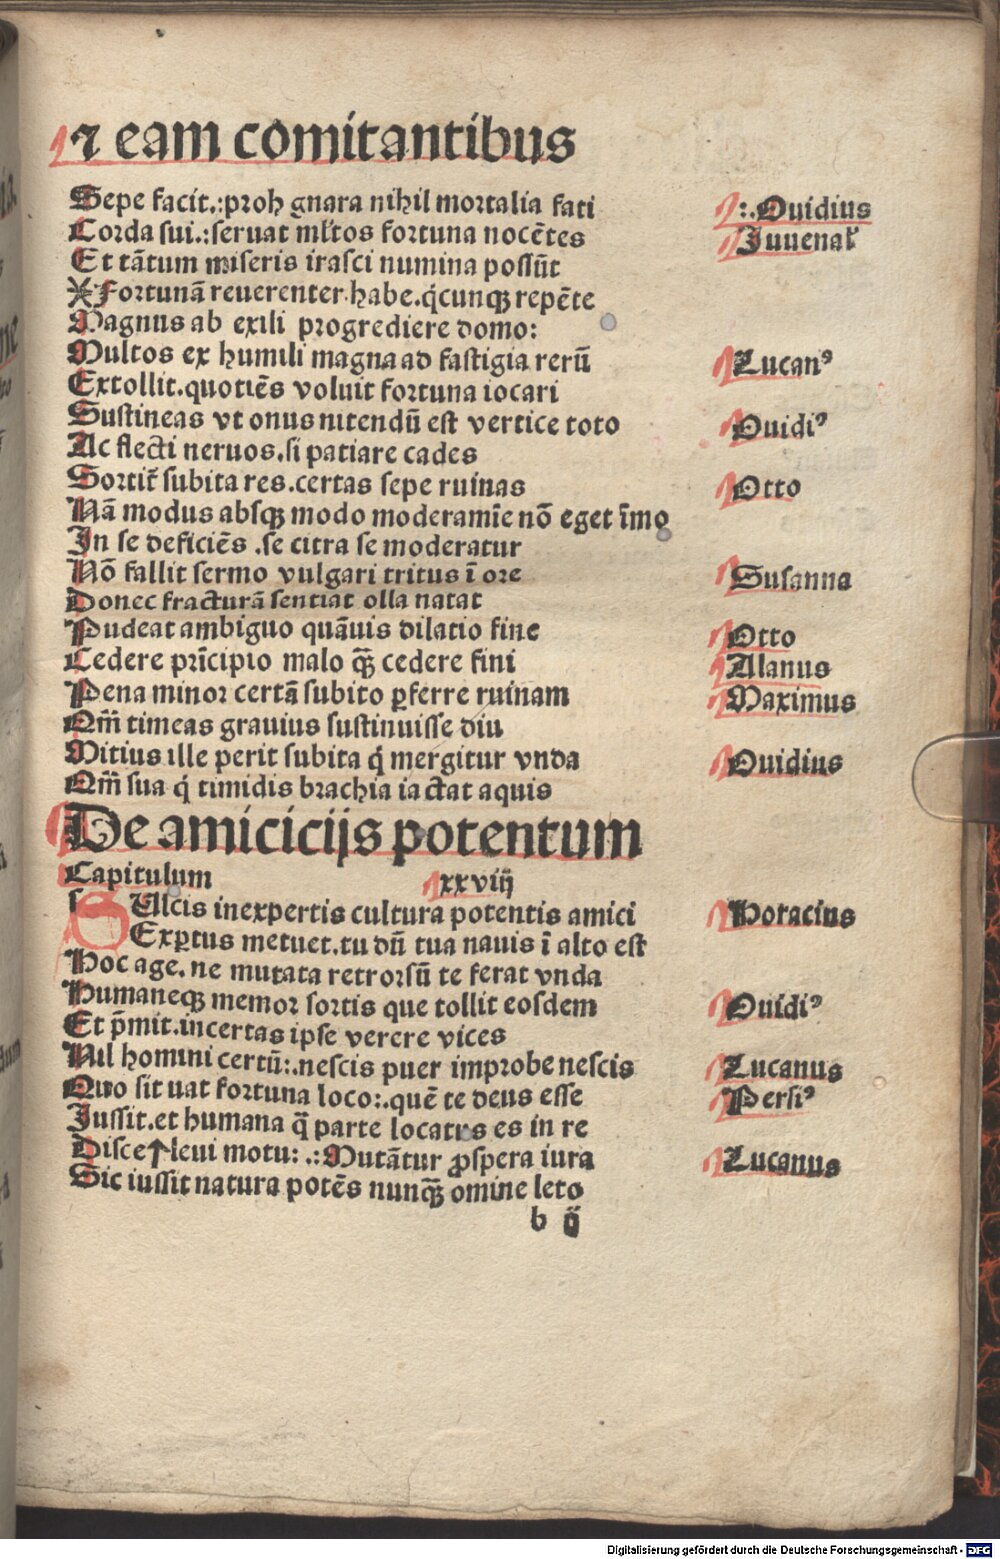 ⁊ eam comitantibus
Sepe facit.:proh gnara nihil mortalia fati :.Ouidius
Corda sui.:seruat ml̃tos fortuna nocẽtes Juuenal̃
Et tãtum miseris irasci numina possũt
Fortunã reuerenter habe.q̇cunqꝫ repẽte
Magnus ab exili progrediere domo:
Multos ex humili magna ad fastigia rerũ Lucanꝰ
Extollit.quotiẽs voluit fortuna iocari
Sustineas vt onus nitendũ est vertice toto Ouidiꝰ
Ac flecti neruos.si patiare cades
Sortit̃ subita res.certas sepe ruinas Otto
Nã modus absqꝫ modo moderamĩe nõ eget ĩmo
In se deficiẽs .se citra se moderatur
Nõ fallit sermo vulgari tritus ĩ ore Susanna
Donec fracturã sentiat olla natat
Pudeat ambiguo quãuis dilatio fine Otto
Cedere prĩcipio malo qꝫ̃ cedere fini Alanus
Pena minor certã subito ꝑferre ruinam Maximus
Qm̃ timeas grauius sustinuisse diu
Mitius ille perit subita q̇ mergitur vnda Ouidius
Qm̃ sua q̇ timidis brachia iactat aquis
De amicicijs potentum
Capitulum xxviij
sUlcis inexpertis cultura potentis amici Horacius
Exꝑtus metuet.tu dũ tua nauis ĩ alto est
Hoc age. ne mutata retrorsũ te ferat vnda
Humaneqꝫ memor sortis que tollit eosdem Ouidiꝰ
Et p̃mit.incertas ipse verere vices
Nil homini certũ:.nescis puer improbe nescis Lucanus
Quo sit uat fortuna loco:.quẽ te deus esse Persiꝰ
Jussit.et humana q̃ parte locatus es in re
Disce↑leui motu: .:Mutãtur ꝓspera iura Lucanus
Sic iussit natura potẽs nunqꝫ̃ omine leto
b ij
Digitalisierung gefördert durch die Deutsche Forschungsgemeinschaft - DFG